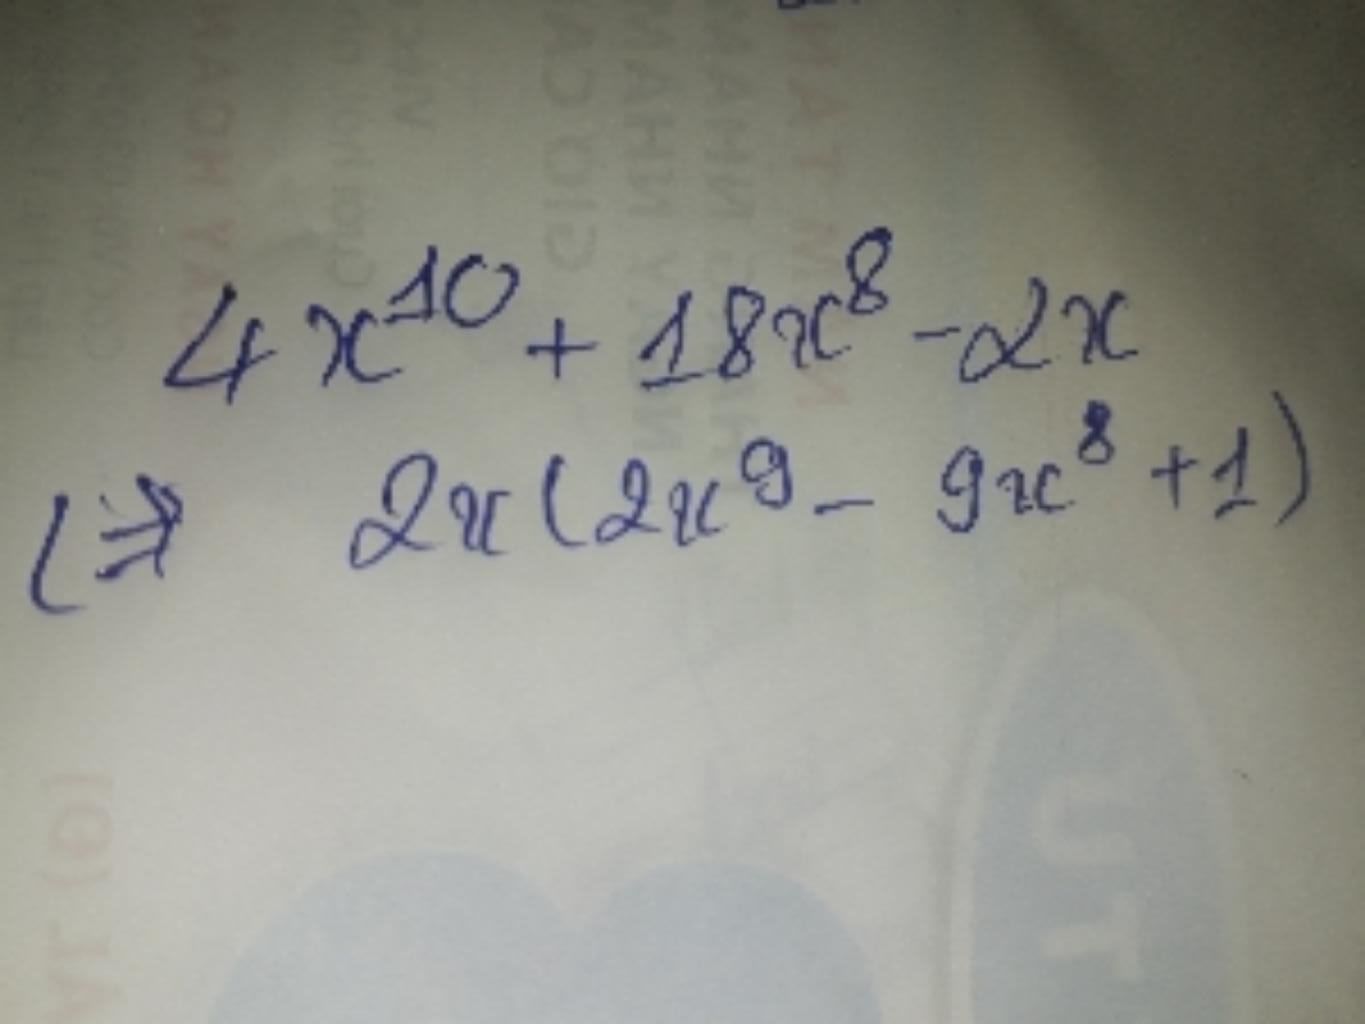 4x^10 + 18x^8 - 2x
(⇒ 2x(2x^9 - 9x^8 + 1)